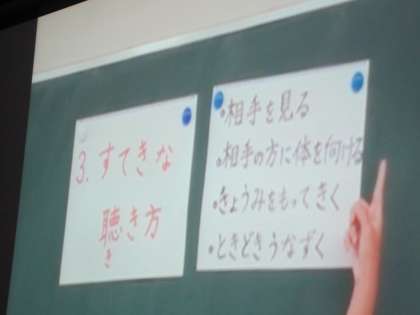 3. すてきな
聴き方
き
・相手を見る
・相手の方に体を向ける
・きょうみをもってきく
・ときどきうなずく